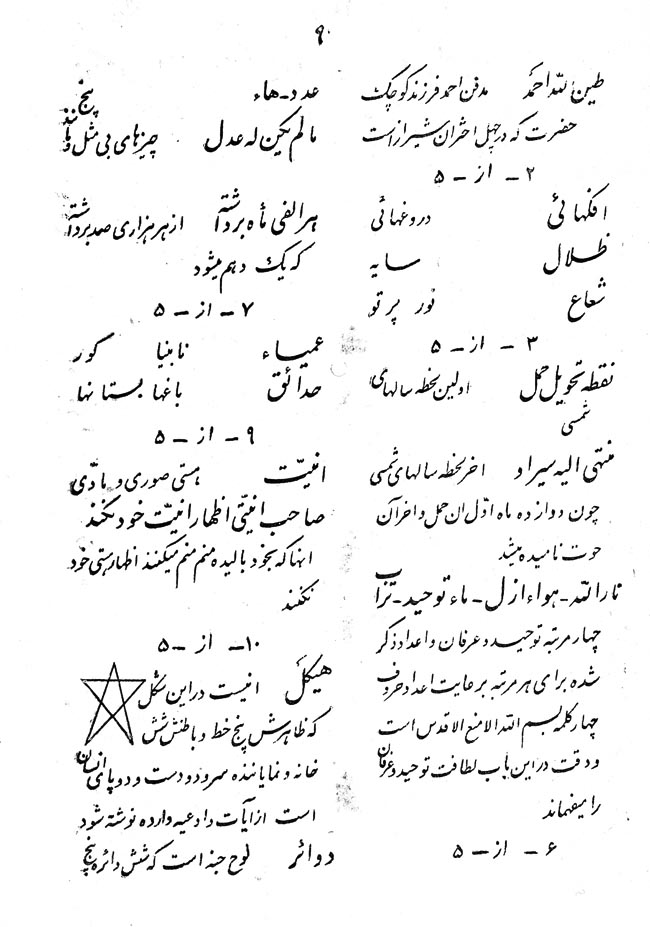 ۹۰
طین اللّه احمد مدفن احمد فرزند کوچک
حضرت که در چهل اختران شیراز است
۲ - از - ۵
افکهائی دروغهائی
ظلال سایه
شعاع نور پرتو
۳ - از - ۵
نقطه تحویل حمل اولین لحظه سالهای
شمسی
منتهی الیه سیراد اخر لحظه سالهای شمسی
چون دوازده ماه اوّل ان حمل و اخر آن
حوت نامیده میشد
نار اللّه - هواء ازل - ماء توحید - تراب
چهار مرتبه توحید و عرفان و اعداد ذکر
شده برای هر مرتبه بر عایت اعداد حروف
چهار کلمه بسم اللّه الامنع الاقدس است
و دقت در این باب لطافت توحید و عرفان
را میفهماند
۶ - از - ۵
عدد - هاء پنج
مالم یکن له عدل چیزهای بی مثل و مانند
هر الفی مأه برداشته از هر هزاری صد برداشته
که یک دهم میشود
۷ - از - ۵
عمیاء نابینا کور
حدائق باغها بستانها
۹ - از - ۵
انیّت هستی صوری و مادّی
صاحب انیّتی اظهار انیّت خود نکند
انها که بخود بالیده منم منم میکنند اظهار هستی خود
نکنند
۱۰ - از - ۵
هیکل انیست در این شکل
که ظاهرش پنج خط و باطنش شش
خانه و نماینده سر و دو دست و دو پای انسان
است از آیات و ادعیه وارده نوشته شود
دوائر لوح جنه است که شش دائره پنج